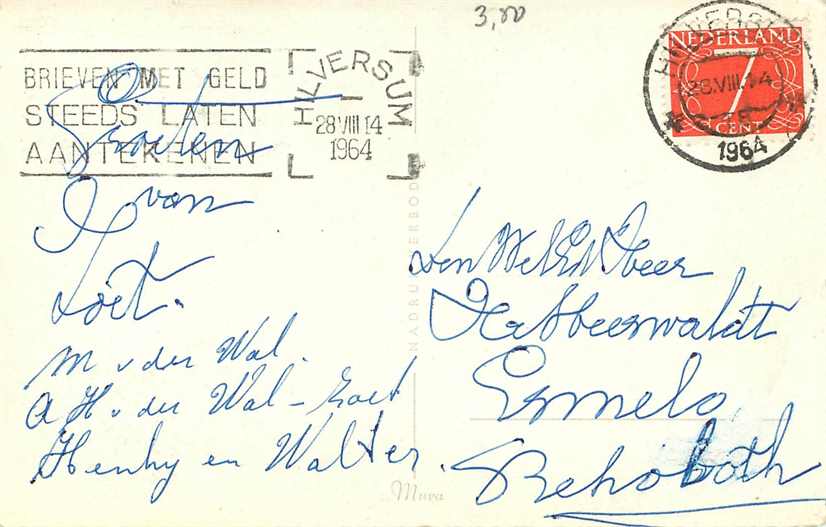 3,00
BRIEVEN MET GELD
STEEDS LATEN
AANTEKENEN
HILVERSUM
28 VIII 14
1964
HILVERSUM
28.VIII.14
1964
NEDERLAND
7
CENT
Groeten
van
Loet.
M v der Wal.
A H v der Wal - Loet
Henny en Walter.
Den WelEd Heer
Ermelo
Rehoboth
NADRUK VERBODEN
Muva